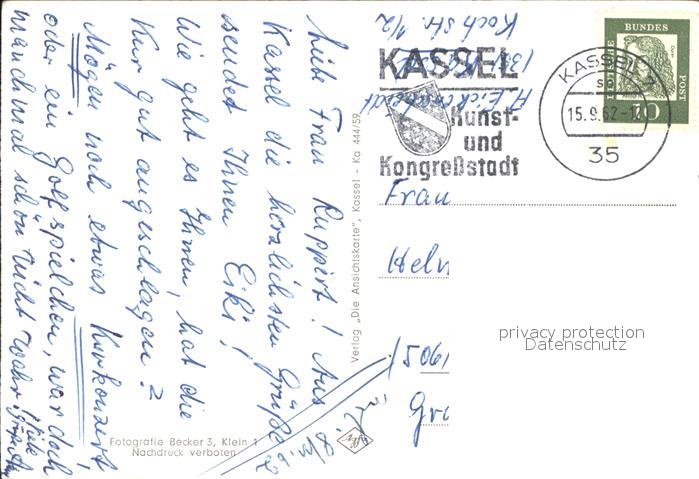 Liebe Frau Ruppert! Aus
Kassel die herzlichsten Grüße
sendet Ihnen Eiki!
Wie geht es Ihnen, hat die
Kur gut angeschlagen?
Mögen noch etwas Kurkonzert
oder ein Golfspielchen, war doch
manchmal schön nicht wahr.
Viele Grüße
Kochstr. 1/2
KASSEL
Kunst-
und
Kongreßstadt
KASSEL 7
15.9.62-1
35
DEUTSCHE
BUNDES
POST
10
Verlag „Die Ansichtskarte", Kassel - Ka 444/59
Frau
Heln
(506
Gr
privacy protection
Datenschutz
Fotografie Becker 3, Klein 1
Nachdruck verboten